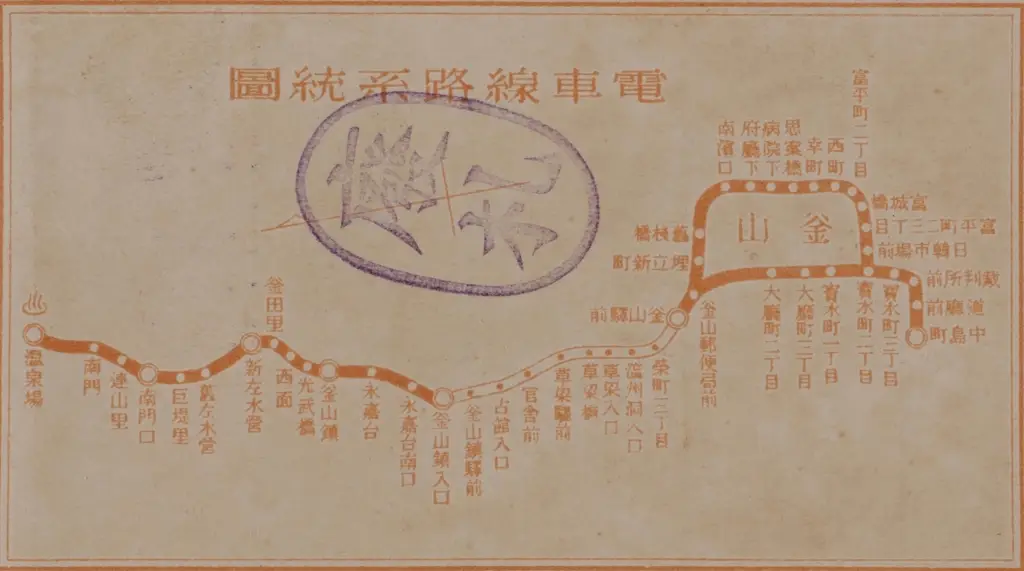 電車線路系統圖
富平町二丁目
西町
幸町
思案橋
病院下
府廳下
南濱口
富城橋
富平町二三丁目
日韓市場前
釜山
舊棧橋
埋立新町
裁判所前
道廳前
中島町
寶水町三丁目
寶水町二丁目
寶水町一丁目
大廳町三丁目
大廳町二丁目
釜山郵便局前
釜山驛前
榮町三丁目
瀛州洞入口
草梁入口
草梁橋
草梁驛前
官舍前
古館入口
釜山鎭驛前
釜山鎭入口
永嘉台南口
永嘉台
釜山鎭
光武橋
西面
釜田里
新左水營
舊左水營
巨堤里
南門口
連山里
南門
溫泉場